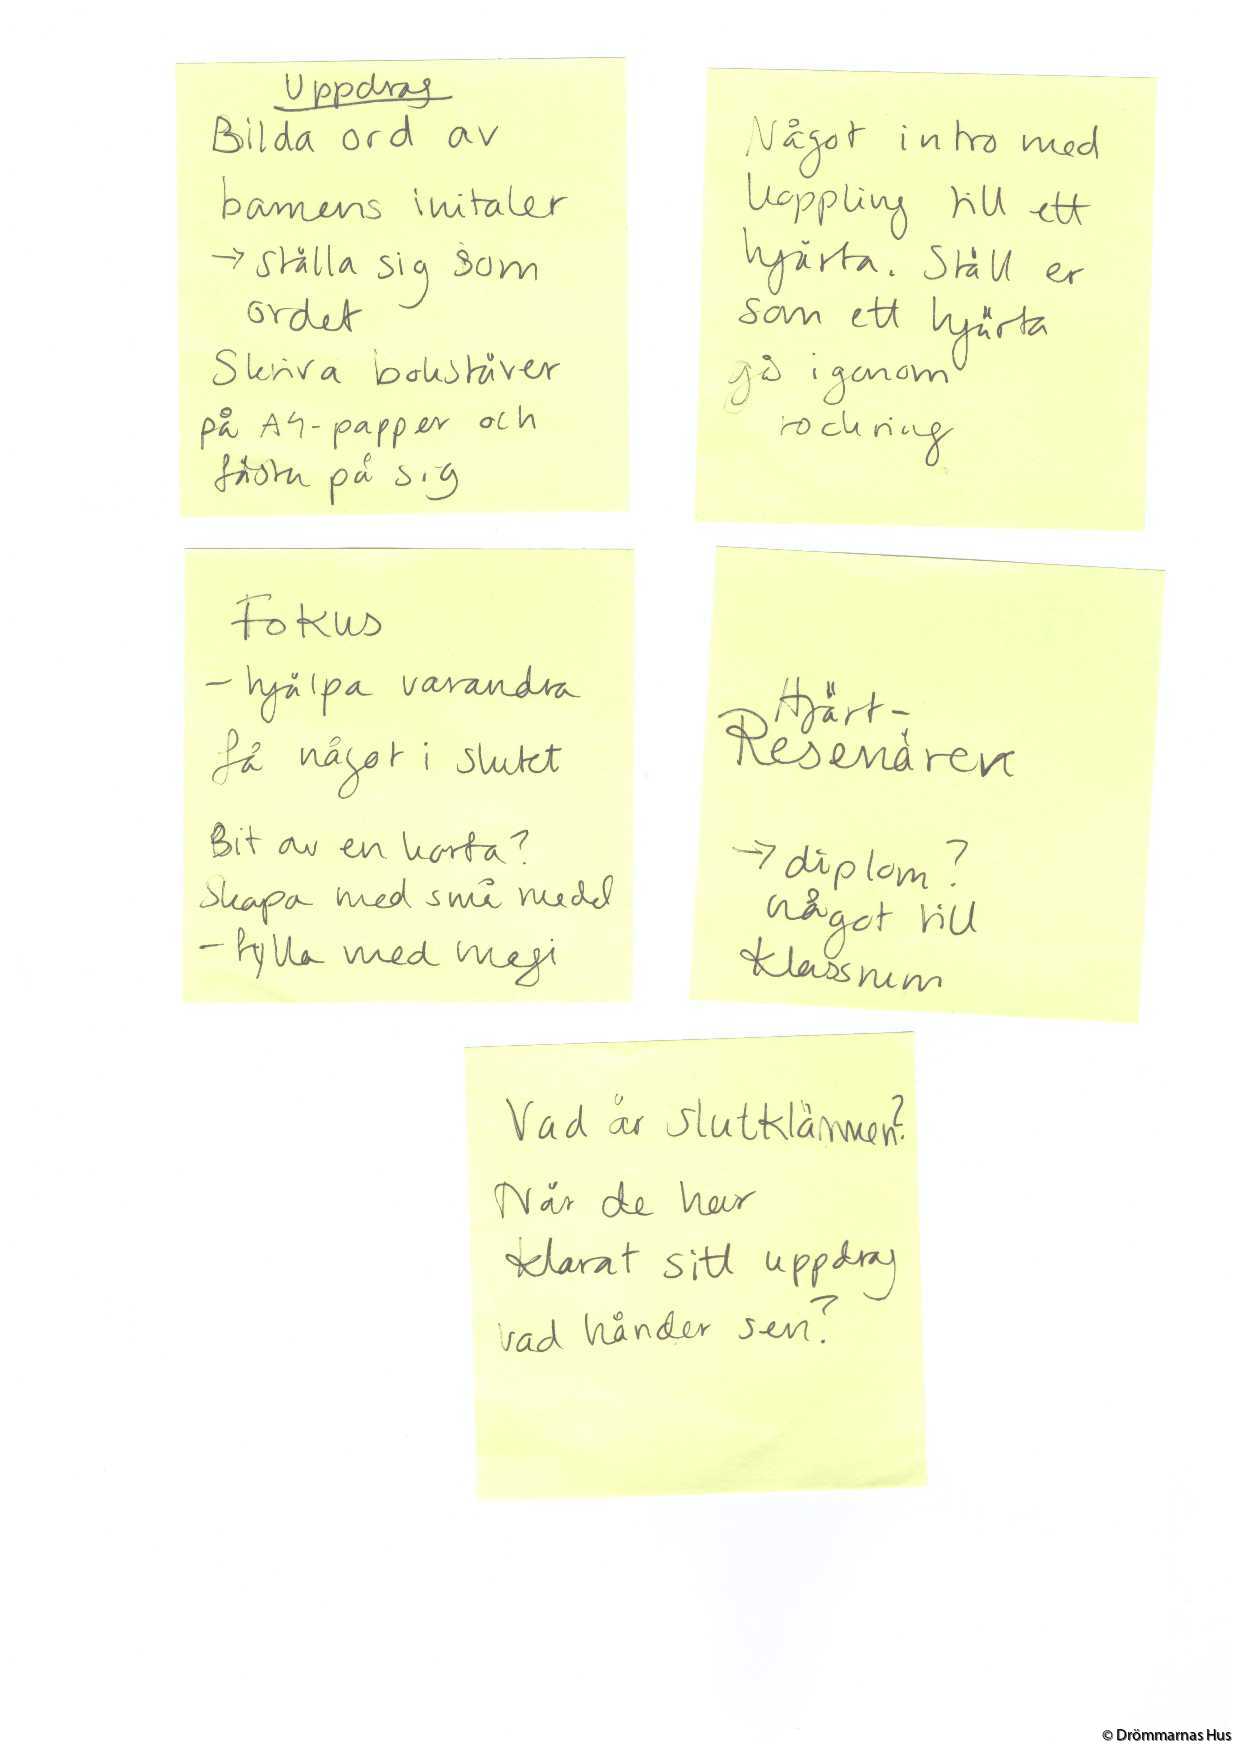 Uppdrag
Bilda ord av
barnens initaler
→ ställa sig som
ordet
Skriva bokstäver
på A4-papper och
fästa på sig
Något intro med
koppling till ett
hjärta. Ställ er
som ett hjärta
gå igenom
rockring
Fokus
- hjälpa varandra
få något i slutet
Bit av en karta?
Skapa med små medel
- fylla med magi
Hjärt-
Resenären
→ diplom?
något till
klassrum
Vad är slutklämmen?
När de har
klarat sitt uppdrag
vad händer sen?
© Drömmarnas Hus